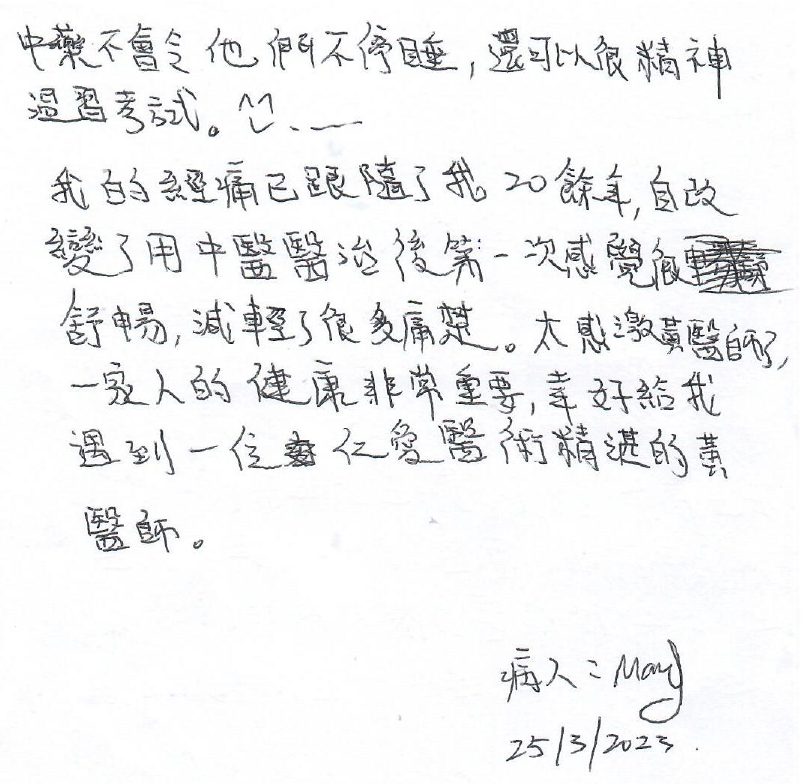 中藥不會令他們不停睡,還可以很精神
溫習考試。^^
我的經痛已跟隨了我20餘年,自改
變了用中醫醫治後第一次感覺很
舒暢,減輕了很多痛楚。太感激黃醫師了,
一家人的健康非常重要,幸好給我
遇到一位仁愛醫術精湛的黃
醫師。
病人:May
25/3/2023.